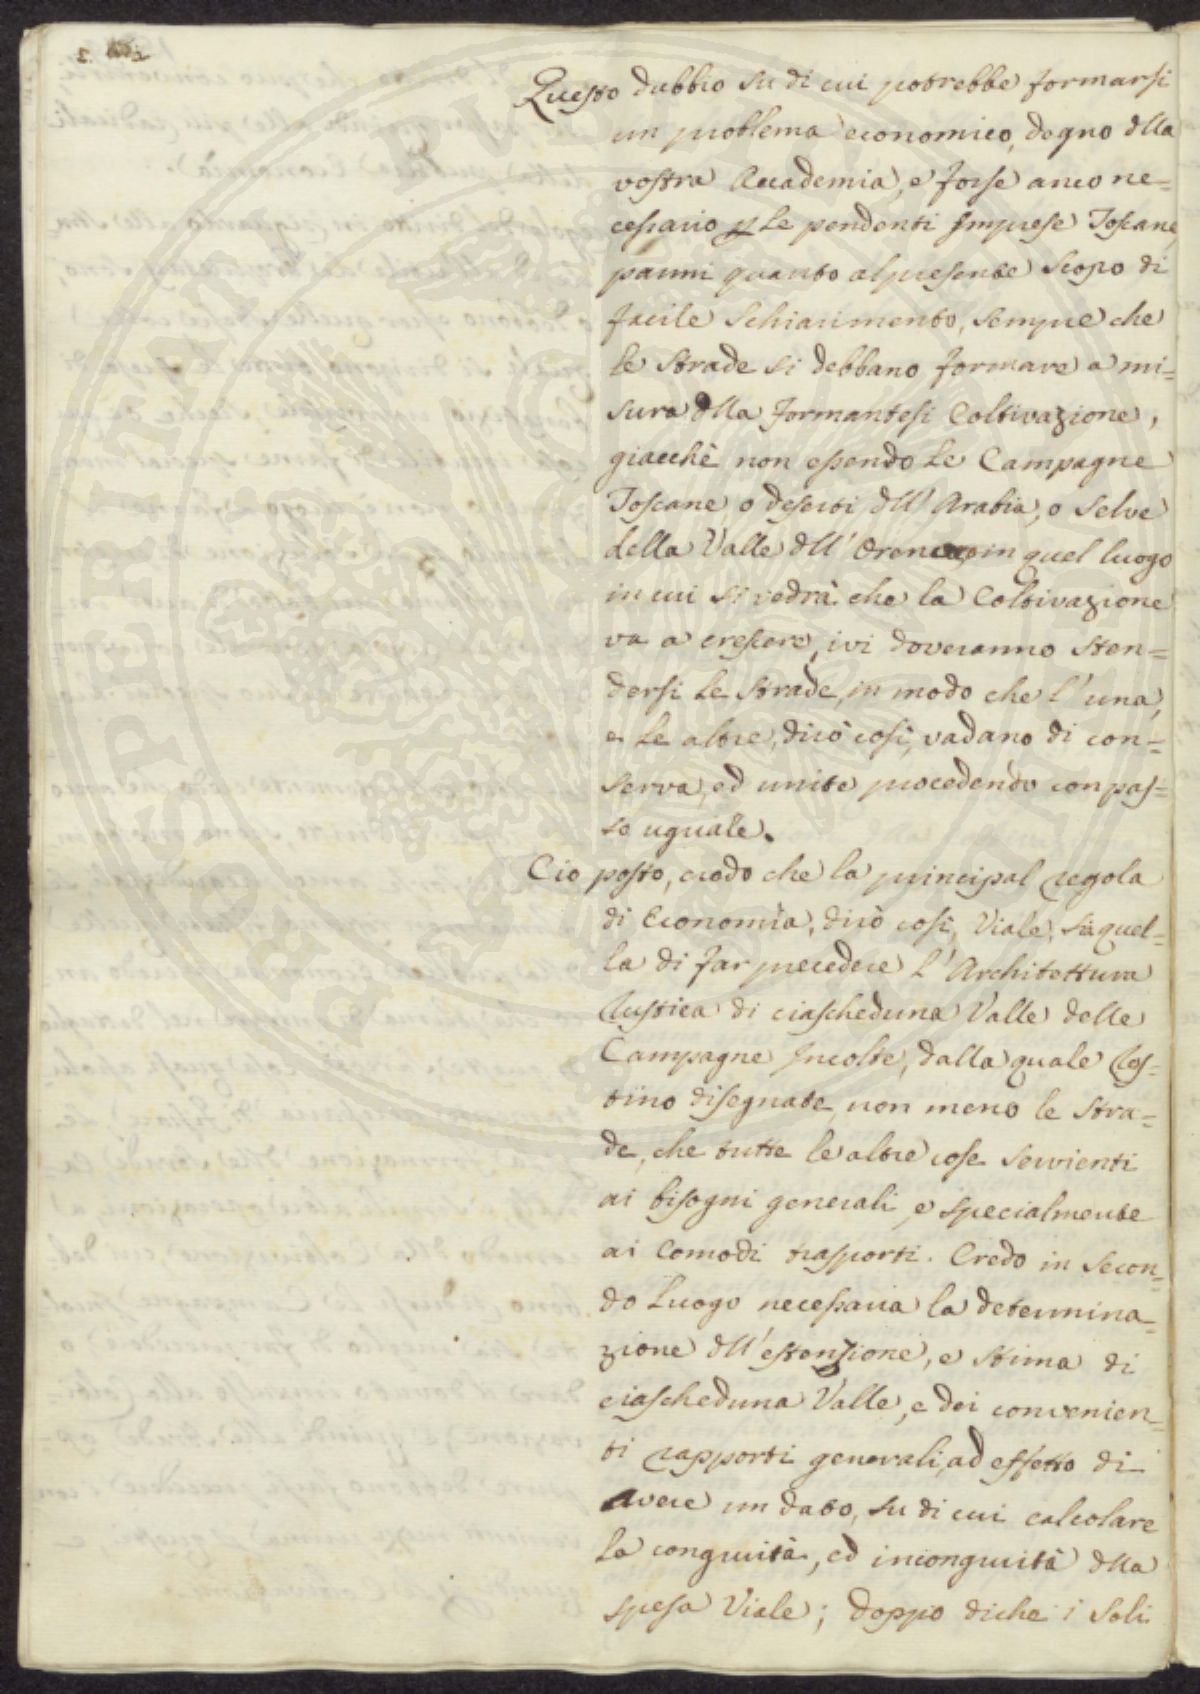 Questo dubbio su di cui potrebbe formarsi
un problema economico, degno dlla
vostra Accademia, e forse anco ne=
cessario p le pendenti Imprese Toscane,
parmi quanto al presente scopo di
facile schiarimento, sempre che
le strade si debbano formare a mi=
sura dlla formantesi Coltivazione,
giacchè non essendo le Campagne
Toscane o deserti dll' Arabia, o selve
della Valle dll' in quel luogo
in cui si vedrà che la Coltivazione
va a crescere, ivi doveranno sten=
dersi le strade, in modo che l'una,
e le altre, dirò così, vadano di con=
serva, ed unite procedendo con pas=
so uguale.
Cio posto, credo che la principal regola
di Economia, dirò così, Viale, sia quel=
la di far precedere l'Architettura
Rustica di ciascheduna Valle delle
Campagne Incolte, dalla quale res=
tino disegnate non meno le stra=
de, che tutte le altre cose servienti
ai bisogni generali, e specialmente
ai Comodi trasporti. Credo in secon=
do luogo necessaria la determina=
zione dll'estenzione, e stima di
ciascheduna Valle, e dei convenien=
ti rapporti generali, ad effetto di
avere un dato, su di cui calcolare
la congruità, ed incongruità dlla
spesa Viale; doppo di che i soli
PUBLICAE PROSPERITATI